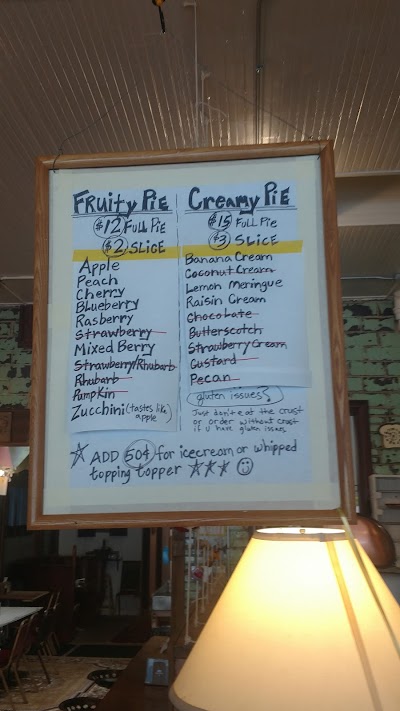 FRuity PiE
$12 Full PiE
$2 SLiCE
Apple
Peach
Cherry
Blueberry
Rasberry
Strawberry
Mixed Berry
Strawberry/Rhubarb
Rhubarb
Pumpkin
Zucchini (tastes like apple)
Creamy PiE
$15 Full Pie
$3 SLiCE
Banana Cream
Coconut Cream
Lemon Meringue
Raisin Cream
Chocolate
Butterscotch
Strawberry Cream
Custard
Pecan
gluten issues?
Just don't eat the crust
or order without crust
if u have gluten issues
☆ ADD 50¢ for icecream or whipped
topping topper ☆☆☆ ☺